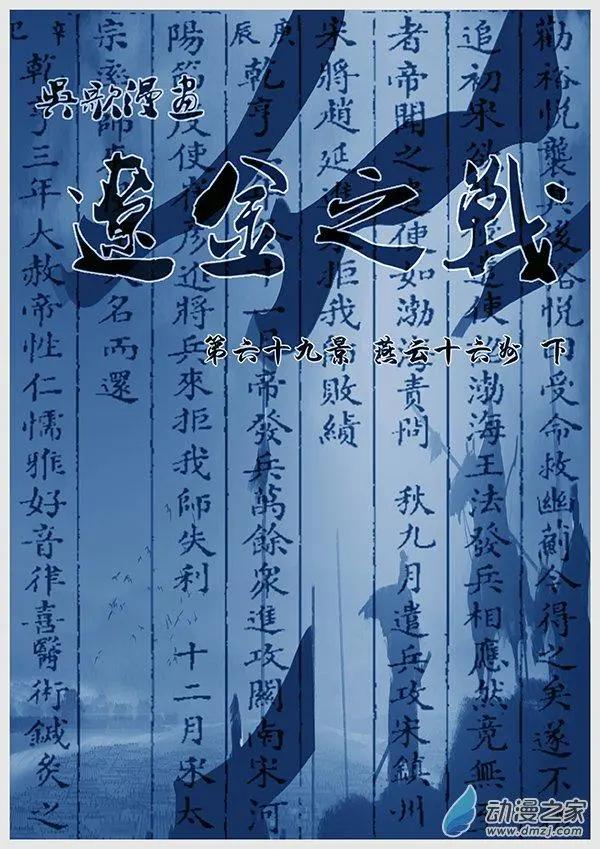 吳歌漫畫
遼金之戰
第六十九景 燕云十六州 下
勸裕悅襲兵後裕悅受命救幽薊令得之矣遂不
追初宋欲遣使渤海王法發兵相應然竟無
者帝聞之遣使如渤海責問 秋九月遣兵攻宋鎮州
宋將趙延進拒我敗績
庚辰 乾亨二十一月帝發兵萬餘衆進攻關南宋河
陽節度使崔彥進將兵來拒我師失利 十二月宋太
宗率師大名而還
辛巳 乾亨三年大赦帝性仁懦雅好音律喜醫術鍼灸之
动漫之家
www.dmzj.com